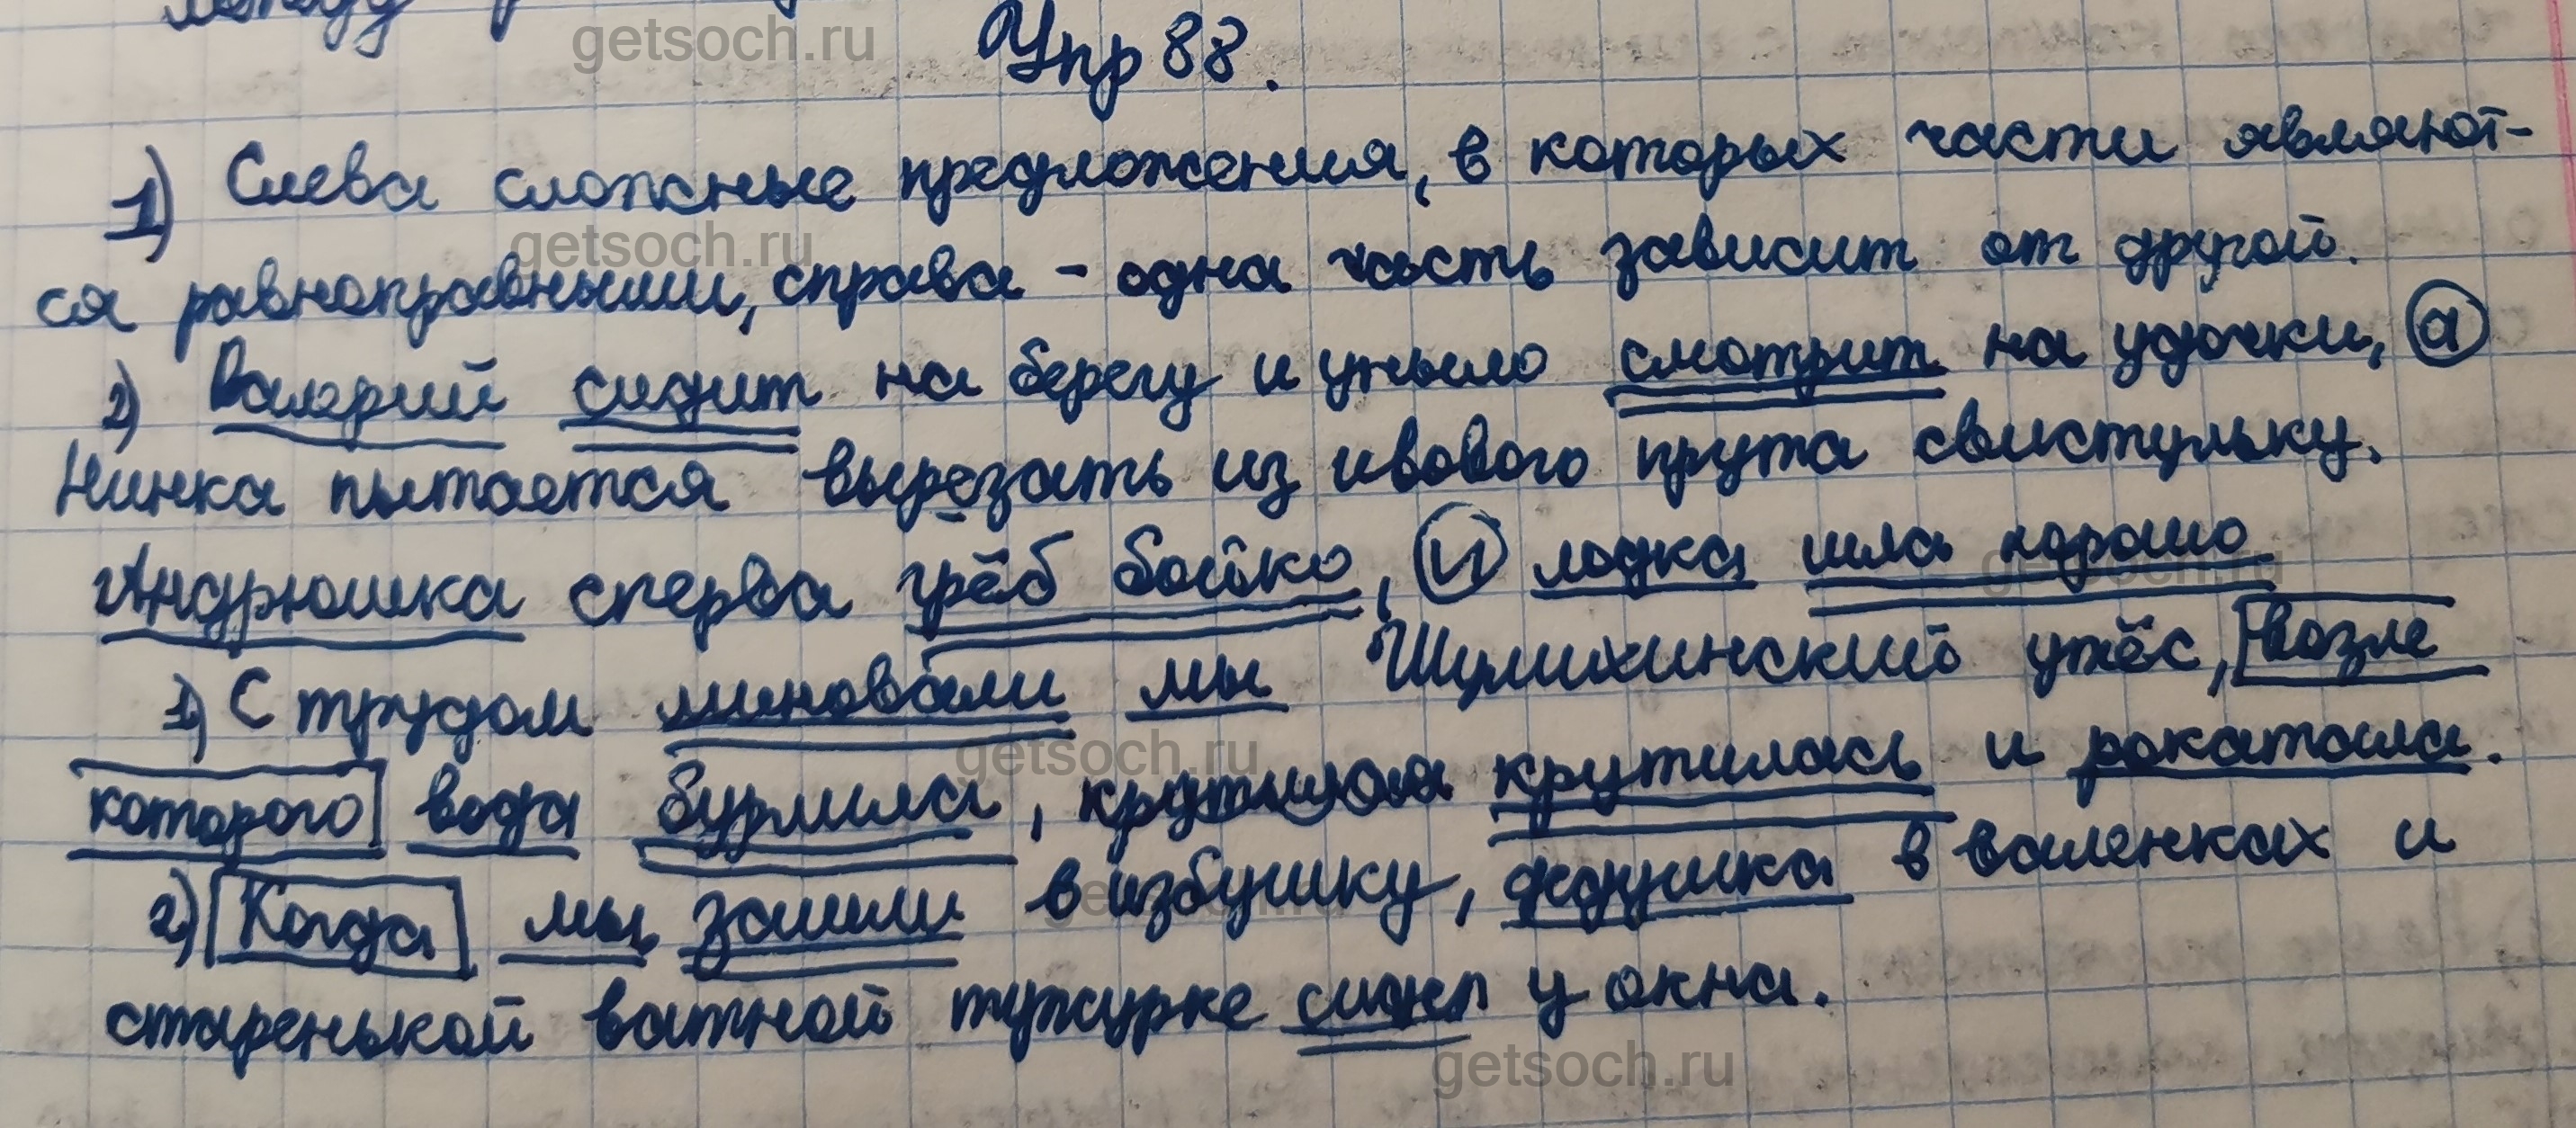 между
Упр 88.
1) Слева сложные предложения, в которых части являют-
ся равноправными, справа - одна часть зависит от другой.
2) Валерий сидит на берегу и уныло смотрит на удочки, а
Нинка пытается вырезать из ивового прута свистульку.
Андрюшка сперва грёб бойко, и лодка шла хорошо
1) С трудом миновали мы Шумихинский утёс, возле
которого вода бурлила, крутилась и рокотала.
2) Когда мы зашли в избушку, дедушка в валенках и
старенькой ватной тужурке сидел у окна.
getsoch.ru
getsoch.ru
getsoch.ru
getsoch.ru
getsoch.ru
getsoch.ru